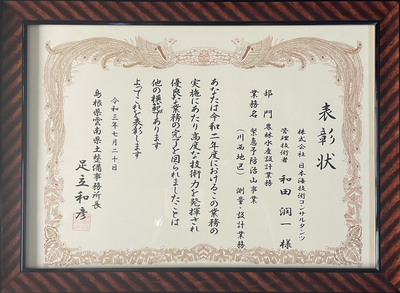 表彰状
株式会社 日本海技術コンサルタンツ
管理技術者 和田 潤一 様
部門 農林水産設計業務
業務名 予防治山事業
(川西地区) 測量・設計業務
あなたは令和二年度におけるこの業務の
実施にあたり高度な技術力を発揮され
優良な業務の完了を図られましたことは
他の模範であります
よってこれを表彰します
令和三年七月二十日
島根県雲南県土整備事務所長
足立和彦